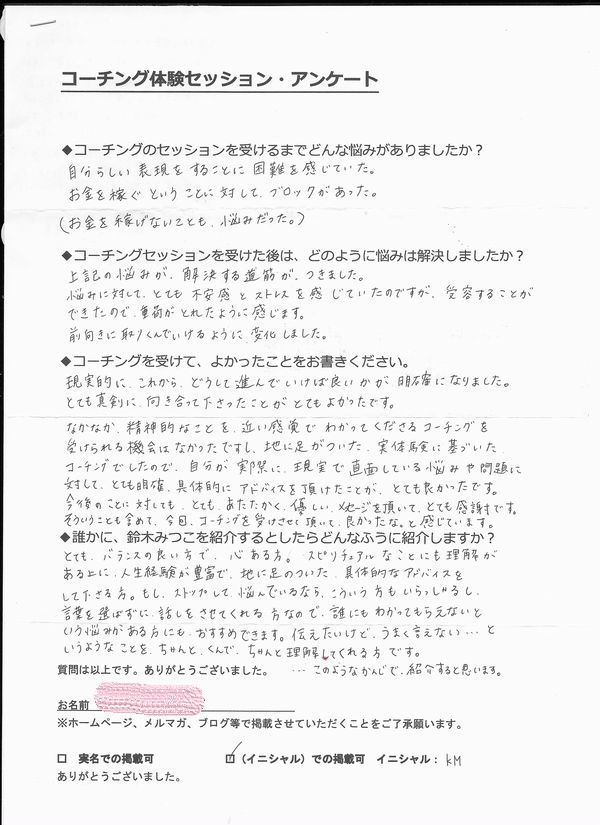 コーチング体験セッション・アンケート
◆コーチングのセッションを受けるまでどんな悩みがありましたか？
自分らしい表現をすることに困難を感じていた。
お金を稼ぐということに対して、ブロックがあった。
(お金を稼げないことも、悩みだった。)
◆コーチングセッションを受けた後は、どのように悩みは解決しましたか？
上記の悩みが、解決する道筋が、つきました。
悩みに対して、とても不安感とストレスを感じていたのですが、受容することが
できたので、重荷がとれたように感じます。
前向きに取りくんでいけるように変化しました。
◆コーチングを受けて、よかったことをお書きください。
現実的に、これから、どうして進んでいけば良いかが明確になりました。
とても真剣に、向き合って下さったことがとてもよかったです。
なかなか、精神的なことを、近い感覚でわかってくださるコーチングを
受けられる機会はなかったですし、地に足がついた、実体験に基づいた
コーチングでしたので、自分が実際に、現実で直面している悩みや問題に
対して、とても明確、具体的にアドバイスを頂けたことが、とても良かったです。
今後のことに対しても、とても、あたたかく、優しい、メッセージを頂いて、とても感謝です。
そういうことも含めて、今回、コーチングを受けさせて頂いて、良かったな。と感じています。
◆誰かに、鈴木みつこを紹介するとしたらどんなふうに紹介しますか？
とても、バランスの良い方で、心ある方。スピリチュアルなことにも理解が
ある上に、人生経験が豊富で、地に足のついた、具体的なアドバイスを
して下さる方。もし、ストップして、悩んでいるなら、こういう方もいらっしゃるし、
言葉を選ばずに、話しをさせてくれる方なので、誰にもわかってもらえないと
いう悩みがある方にも、おすすめできます。伝えたいけど、うまく言えない…と
いうようなことを、ちゃんと、くんで、ちゃんと理解してくれる方です。
質問は以上です。ありがとうございました。 …このようなかんじで、紹介すると思います。
お名前
※ホームページ、メルマガ、ブログ等で掲載させていただくことをご了承願います。
□ 実名での掲載可 ☑（イニシャル）での掲載可 イニシャル： KM
ありがとうございました。